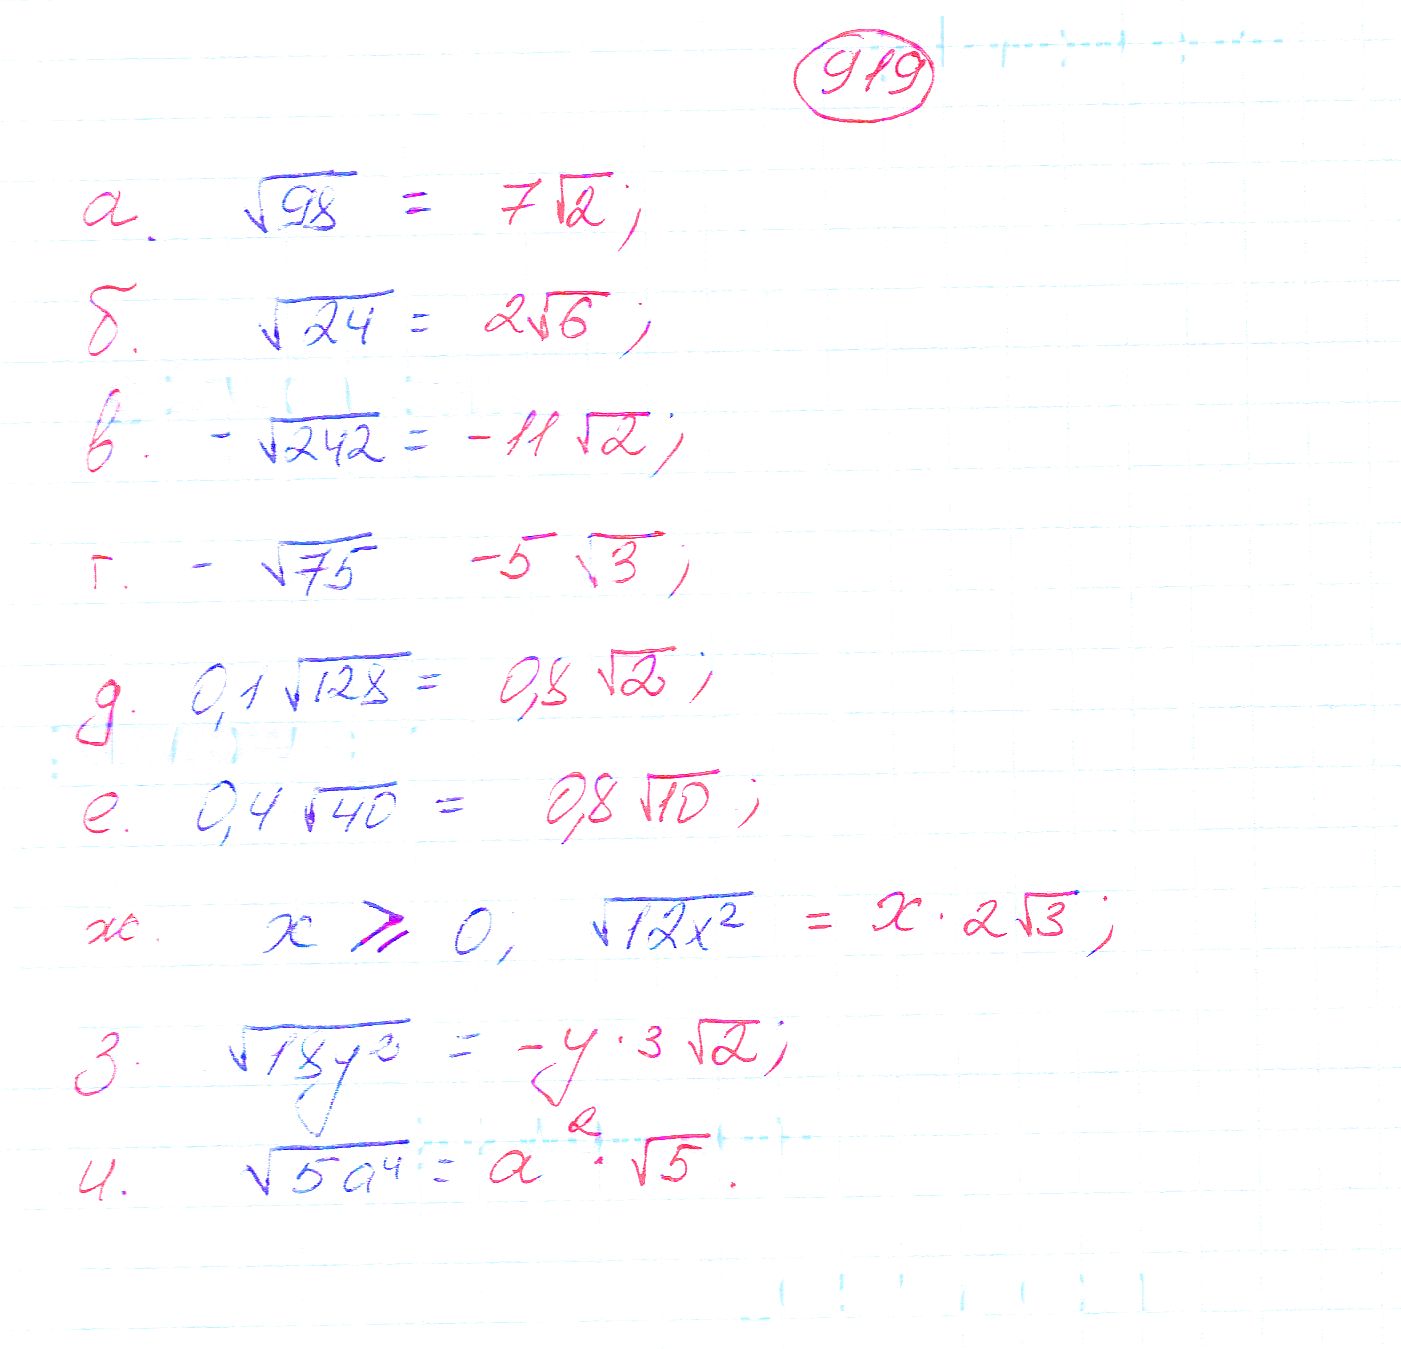 919
а. √98 = 7√2;
б. √24 = 2√6;
в. -√242 = -11√2;
г. -√75 -5√3;
д. 0,1√128 = 0,8√2;
е. 0,4√40 = 0,8√10;
ж. x ⩾ 0, √12x² = x·2√3;
з. √18y² = -y·3√2;
и. √5a⁴ = a²·√5.